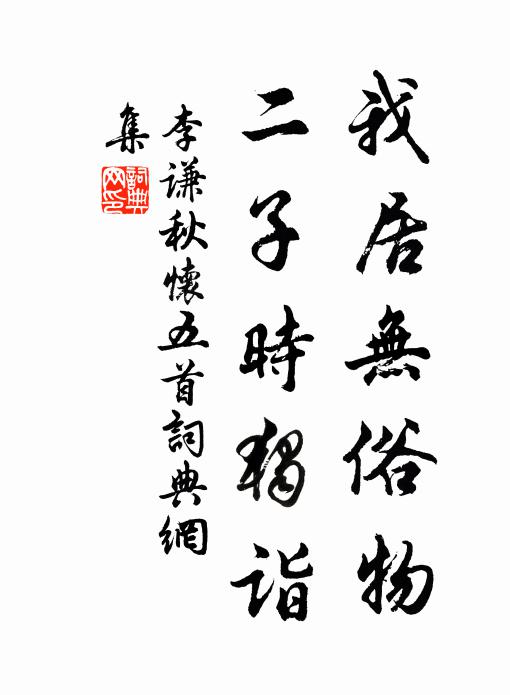 我居無俗物
二子時獨詣
李謙秋懷五首詞典網
集
詞典
网印